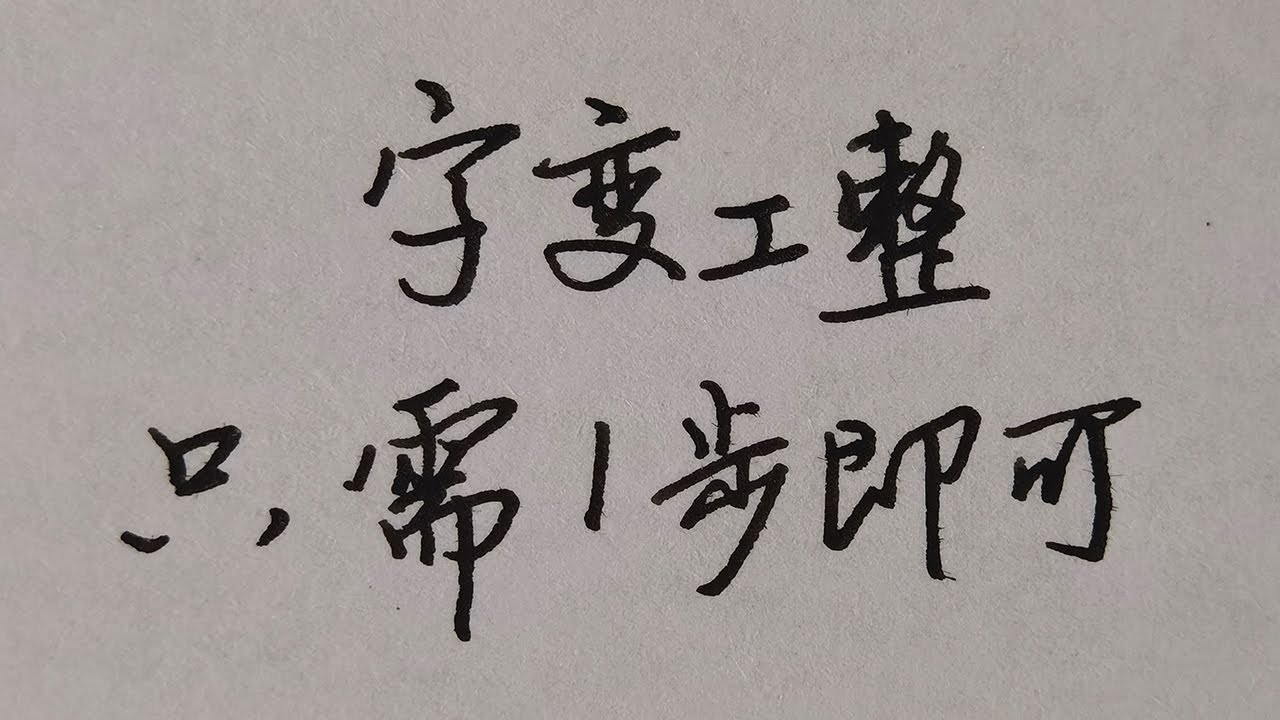 字变工整
只需1步即可